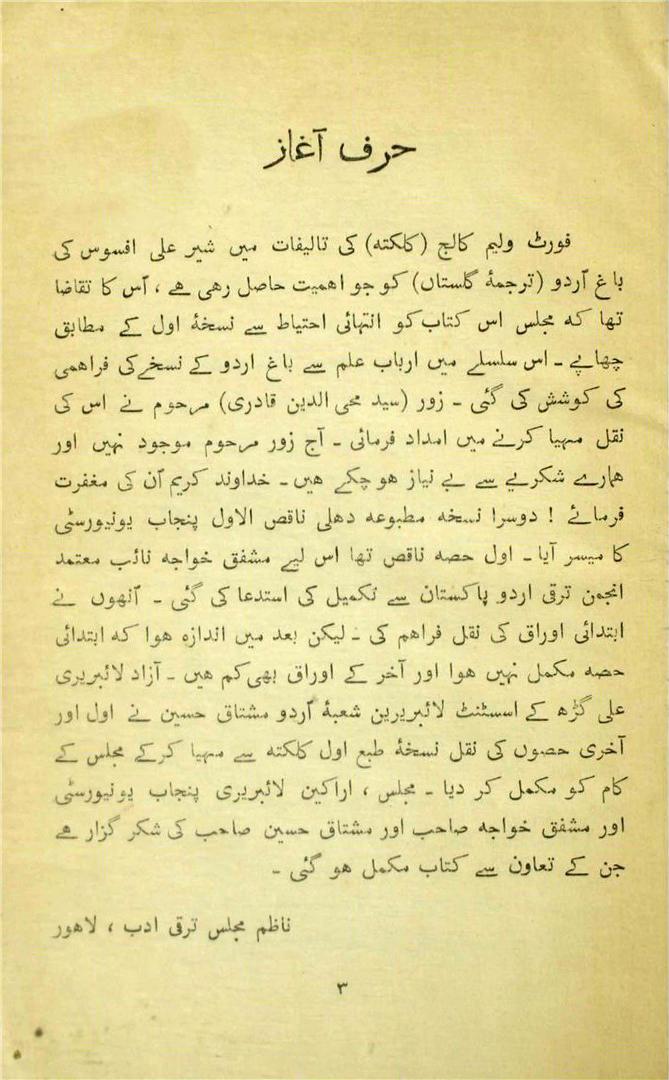 حرف آغاز
فورٹ ولیم کالج (کلکتہ) کی تالیفات میں شیر علی افسوس کی
باغ اُردو (ترجمۂ گلستاں) کو جو اہمیت حاصل رہی ہے ، اُس کا تقاضا
تھا کہ مجلس اس کتاب کو انتہائی احتیاط سے نسخۂ اول کے مطابق
چھاپے ۔ اس سلسلے میں ارباب علم سے باغ اردو کے نسخے کی فراہمی
کی کوشش کی گئی ۔ زور (سید محی الدین قادری) مرحوم نے اس کی
نقل مہیا کرنے میں امداد فرمائی ۔ آج زور مرحوم موجود نہیں اور
ہمارے شکریے سے بے نیاز ہو چکے ہیں ۔ خداوند کریم اُن کی مغفرت
فرمائے ! دوسرا نسخہ مطبوعہ دہلی ناقص الاول پنجاب یونیورسٹی
کا میسر آیا ۔ اول حصہ ناقص تھا اس لیے مشفق خواجہ نائب معتمد
انجمن ترقی اردو پاکستان سے تکمیل کی استدعا کی گئی ۔ اُنھوں نے
ابتدائی اوراق کی نقل فراہم کی ۔ لیکن بعد میں اندازہ ہوا کہ ابتدائی
حصہ مکمل نہیں ہوا اور آخر کے اوراق بھی کم ہیں ۔ آزاد لائبریری
علی گڑھ کے اسسٹنٹ لائبریرین شعبۂ اُردو مشتاق حسین نے اول اور
آخری حصوں کی نقل نسخۂ طبع اول کلکتہ سے مہیا کرکے مجلس کے
کام کو مکمل کر دیا ۔ مجلس ، اراکین لائبریری پنجاب یونیورسٹی
اور مشفق خواجہ صاحب اور مشتاق حسین صاحب کی شکر گزار ہے
جن کے تعاون سے کتاب مکمل ہو گئی ۔
ناظم مجلس ترقی ادب ، لاہور
۳